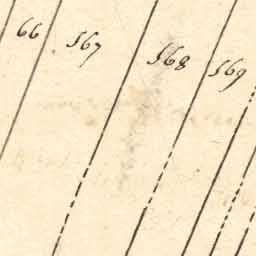 66
567
568
569